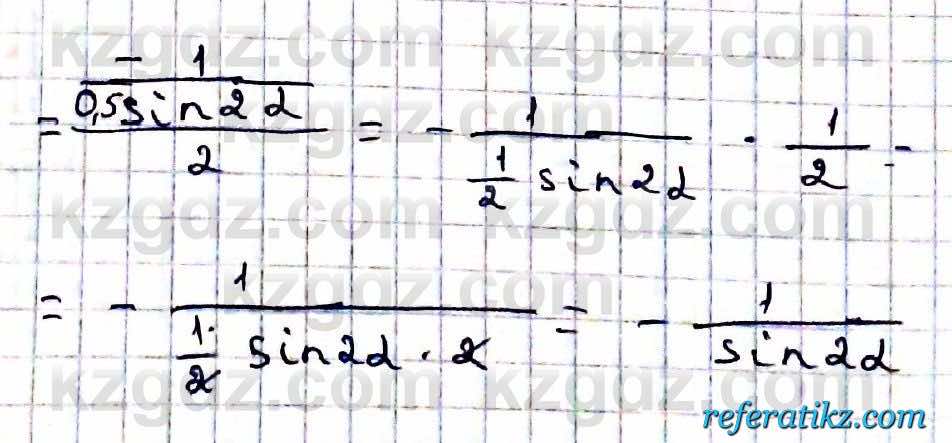 kzgdz.com kzgdz.com
- 1
0,5sin2α
= = - 1 · 1 =
2 1/2 sin2α 2
kzgdz.com kzgdz.com
= - 1 = - 1
1/2 sin2α · 2 sin2α
kzgdz.com kzgdz.com
referatikz.com